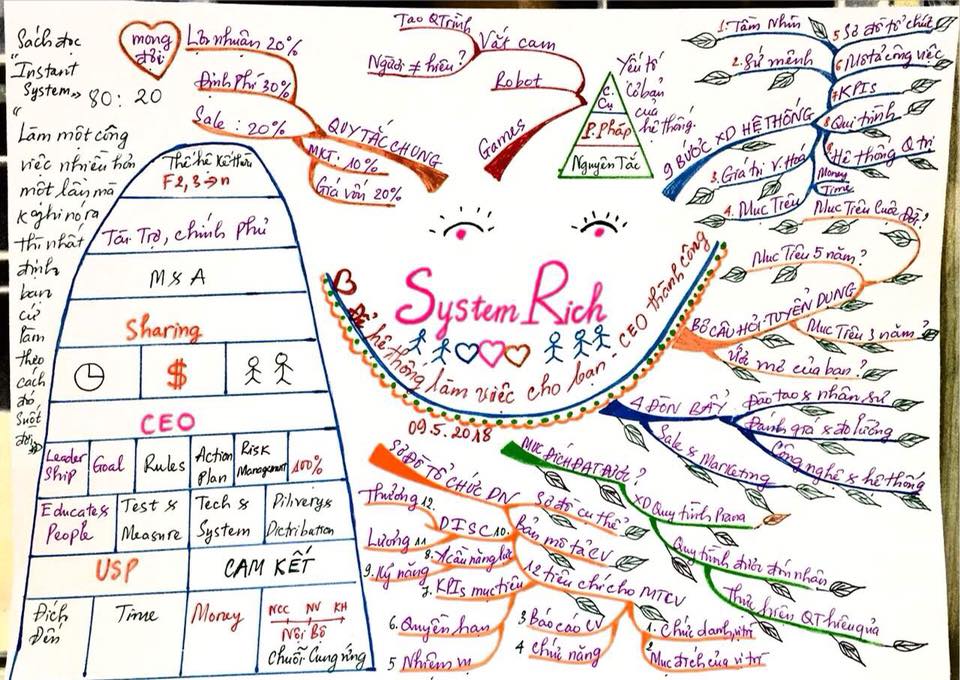 Sách đọc
"Instant
System"
80:20
Làm một công
việc nhiều hơn
một lần mà
K ghi nó ra
thì nhất
định
bạn
cứ
làm
theo
cách
đó,
Suốt
đời
mong
đợi
Lợi nhuận 20%
Định Phí 30%
Sale: 20%
QUY TẮC CHUNG
MKT: 10%
Giá vốn 20%
Tạo QTrình
Người ≠ hiểu?
Vắt cam
Robot
Games
C.
Cụ
P. Pháp
Nguyên Tắc
Yếu tố
Cơ bản
của
hệ thống.
9 BƯỚC XD HỆ THỐNG
1. Tầm Nhìn
2. Sứ mệnh
3. Giá trị V. Hoá
4. Mục Tiêu
5 Sơ đồ tổ chức
6 Mô tả công việc
7 KPIs
8 Qui trình
Hệ thống Q trị
Money
Time
Thế hệ Kế thừa
F2,3→n
Tài Trợ, chính phủ
M & A
Sharing
$
CEO
Leader
Ship
Goal
Rules
Action
Plan
Risk
Management
100%
Educate &
People
Test &
Measure
Tech &
System
Pilivery &
Dictribution
USP
CAM KẾT
Đích
Đến
Time
Money
NCC NV KH
Nội Bộ
Chuỗi Cung ứng
System Rich
Để hệ thống làm việc cho bạn - CEO thành công
09.5.2018
BỘ CÂU HỎI TUYỂN DỤNG
Mục Tiêu Cuộc Đời?
Mục Tiêu 5 năm?
Mục Tiêu 3 năm?
Ước mơ của bạn?
4 ĐÒN BẨY
Đào tạo & nhân sự
Đánh giá & đo lường
Công nghệ & hệ thống
Sale & Marketing
MỤC ĐÍCH ĐẠT ĐƯỢC?
XD Quy trình
Quy trình được đón nhận
Thực hiện QT hiệu quả
SƠ ĐỒ TỔ CHỨC DN
Sơ đồ cụ thể
Bản mô tả CV
12 tiêu chí cho MTCV
1. Chức danh, vị trí
2 Mục đích của vị trí
3 Báo cáo CV
4 Chức năng
5 Nhiệm vụ
6. Quyền hạn
7. KPIs mục tiêu
8. Yêu cầu năng lực
9. Kỹ năng
DISC 10.
Lương 11
Thưởng 12.